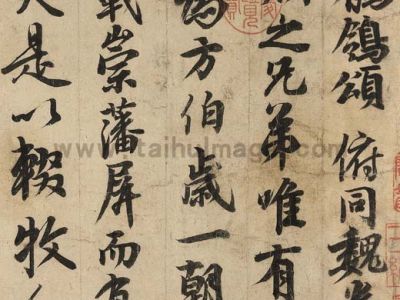 鴒頌 俯同魏
之兄弟唯有
為方伯歲一朝
載崇藩屏而
是以輟牧